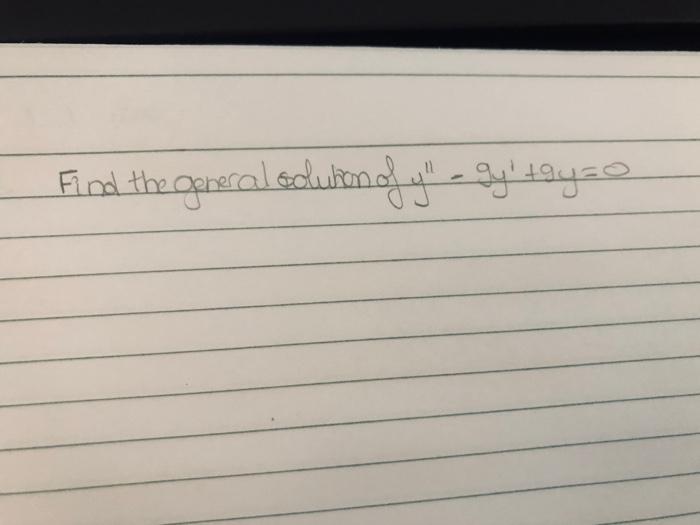 Find the general solution of y'' - 9y' + 9y = 0